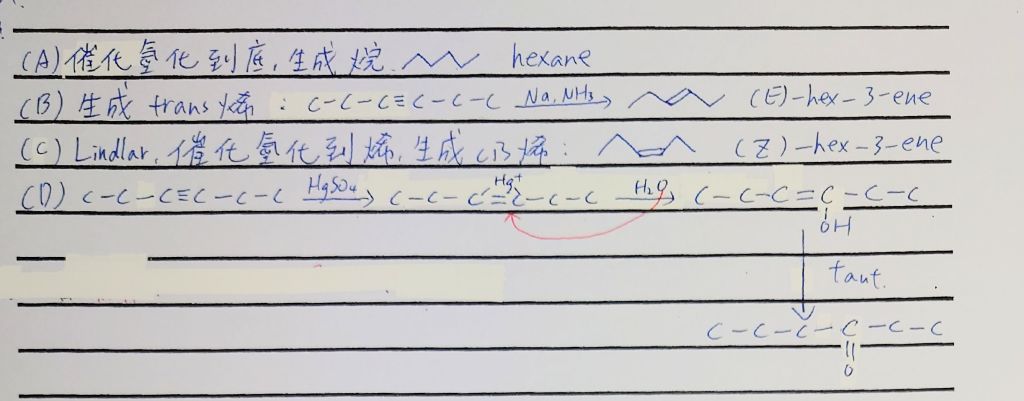 (A) 催化氢化到底,生成烷. hexane
(B) 生成 trans 烯 : C-C-C≡C-C-C Na, NH3 (E)-hex-3-ene
(C) Lindlar, 催化氢化到烯, 生成 cis 烯: (Z)-hex-3-ene
(D) C-C-C≡C-C-C HgSO4 C-C-C=C-C-C Hg+ H2O C-C-C=C-C-C
OH
taut.
C-C-C-C-C-C
O